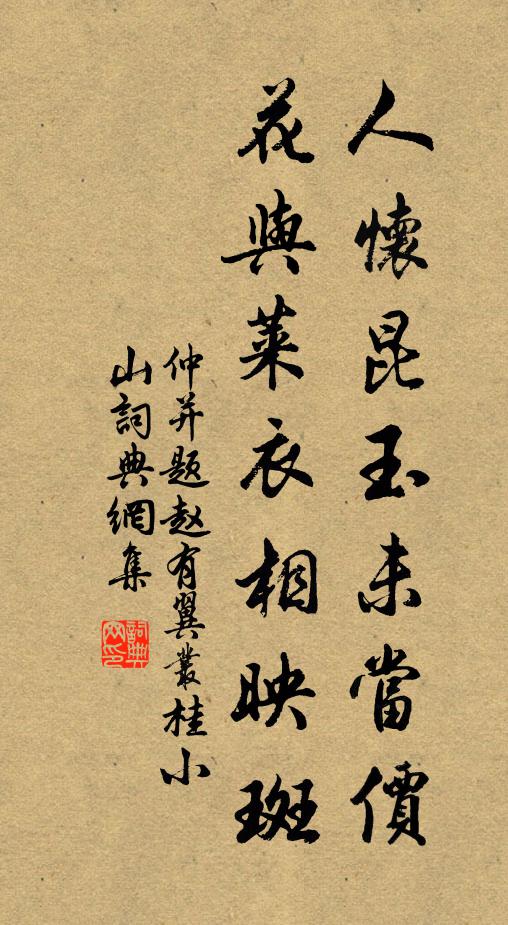 人懷昆玉未當價
花與萊衣相映斑
仲并題赵有翼叢桂小
山詞典網集
詞典
网印